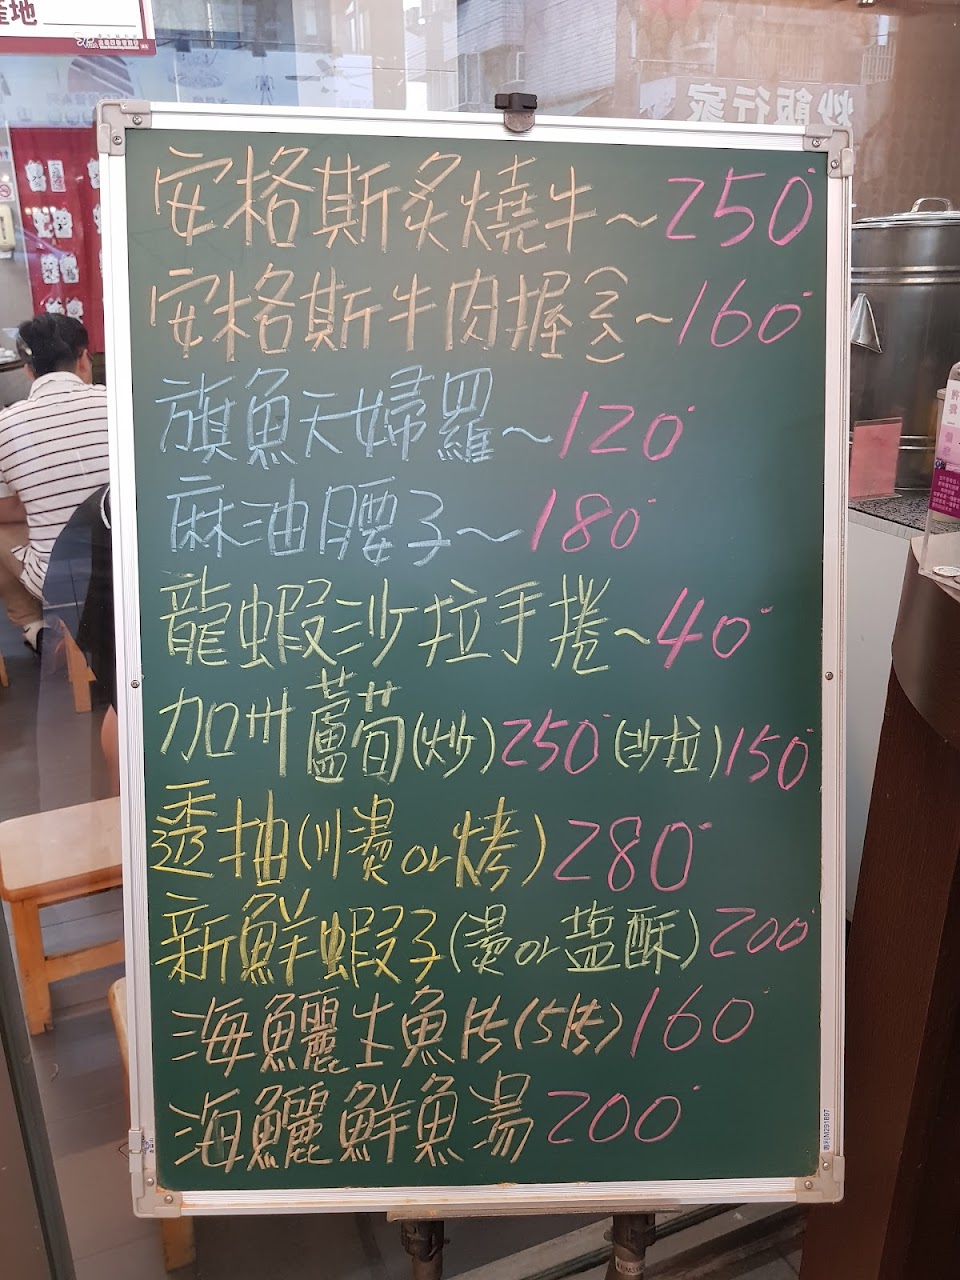 產地
炒飯行家
安格斯炙燒牛~250
安格斯牛肉握(二)~160
旗魚天婦羅~120
麻油腰子~180
龍蝦沙拉手捲~40
加州蘆荀(炒)250(沙拉)150
透抽(川燙or烤)280
新鮮蝦子(燙or塩酥)200
海鱺土魚片(5片)160
海鱺鮮魚湯200